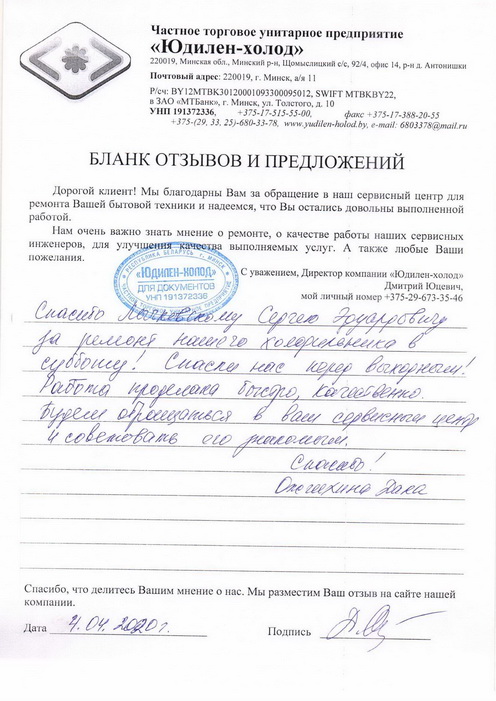 Частное торговое унитарное предприятие
«Юдилен-холод»
220019, Минская обл., Минский р-н, Щомыслицкий с/с, 92/4, офис 14, р-н д. Антонишки
Почтовый адрес: 220019, г. Минск, а/я 11
Р/сч: BY12MTBK30120001093300095012, SWIFT MTBKBY22,
в ЗАО «МТБанк», г. Минск, ул. Толстого, д. 10
УНП 191372336, +375-17-515-55-00, факс +375-17-388-20-55
+375-(29, 33, 25)-680-33-78, www.yudilen-holod.by, e-mail: 6803378@mail.ru
БЛАНК ОТЗЫВОВ И ПРЕДЛОЖЕНИЙ
Дорогой клиент! Мы благодарны Вам за обращение в наш сервисный центр для
ремонта Вашей бытовой техники и надеемся, что Вы остались довольны выполненной
работой.
Нам очень важно знать мнение о ремонте, о качестве работы наших сервисных
инженеров, для улучшения качества выполняемых услуг. А также любые Ваши
пожелания.
РЕСПУБЛИКА БЕЛАРУСЬ г. МИНСК
«ЮДИЛЕН-ХОЛОД»
ДЛЯ ДОКУМЕНТОВ
УНП 191372336
С уважением, Директор компании «Юдилен-холод»
Дмитрий Юцевич,
мой личный номер +375-29-673-35-46
Спасибо Сергею Эдуардовичу
за ремонт нашего холодильника в
субботу! Спасли нас перед выходным!
Работа проделана быстро, качественно.
Будем обращаться в ваш сервисный центр
и советовать его знакомым.
Спасибо!
Спасибо, что делитесь Вашим мнением о нас. Мы разместим Ваш отзыв на сайте нашей
компании.
Дата 4.04.2020г. Подпись